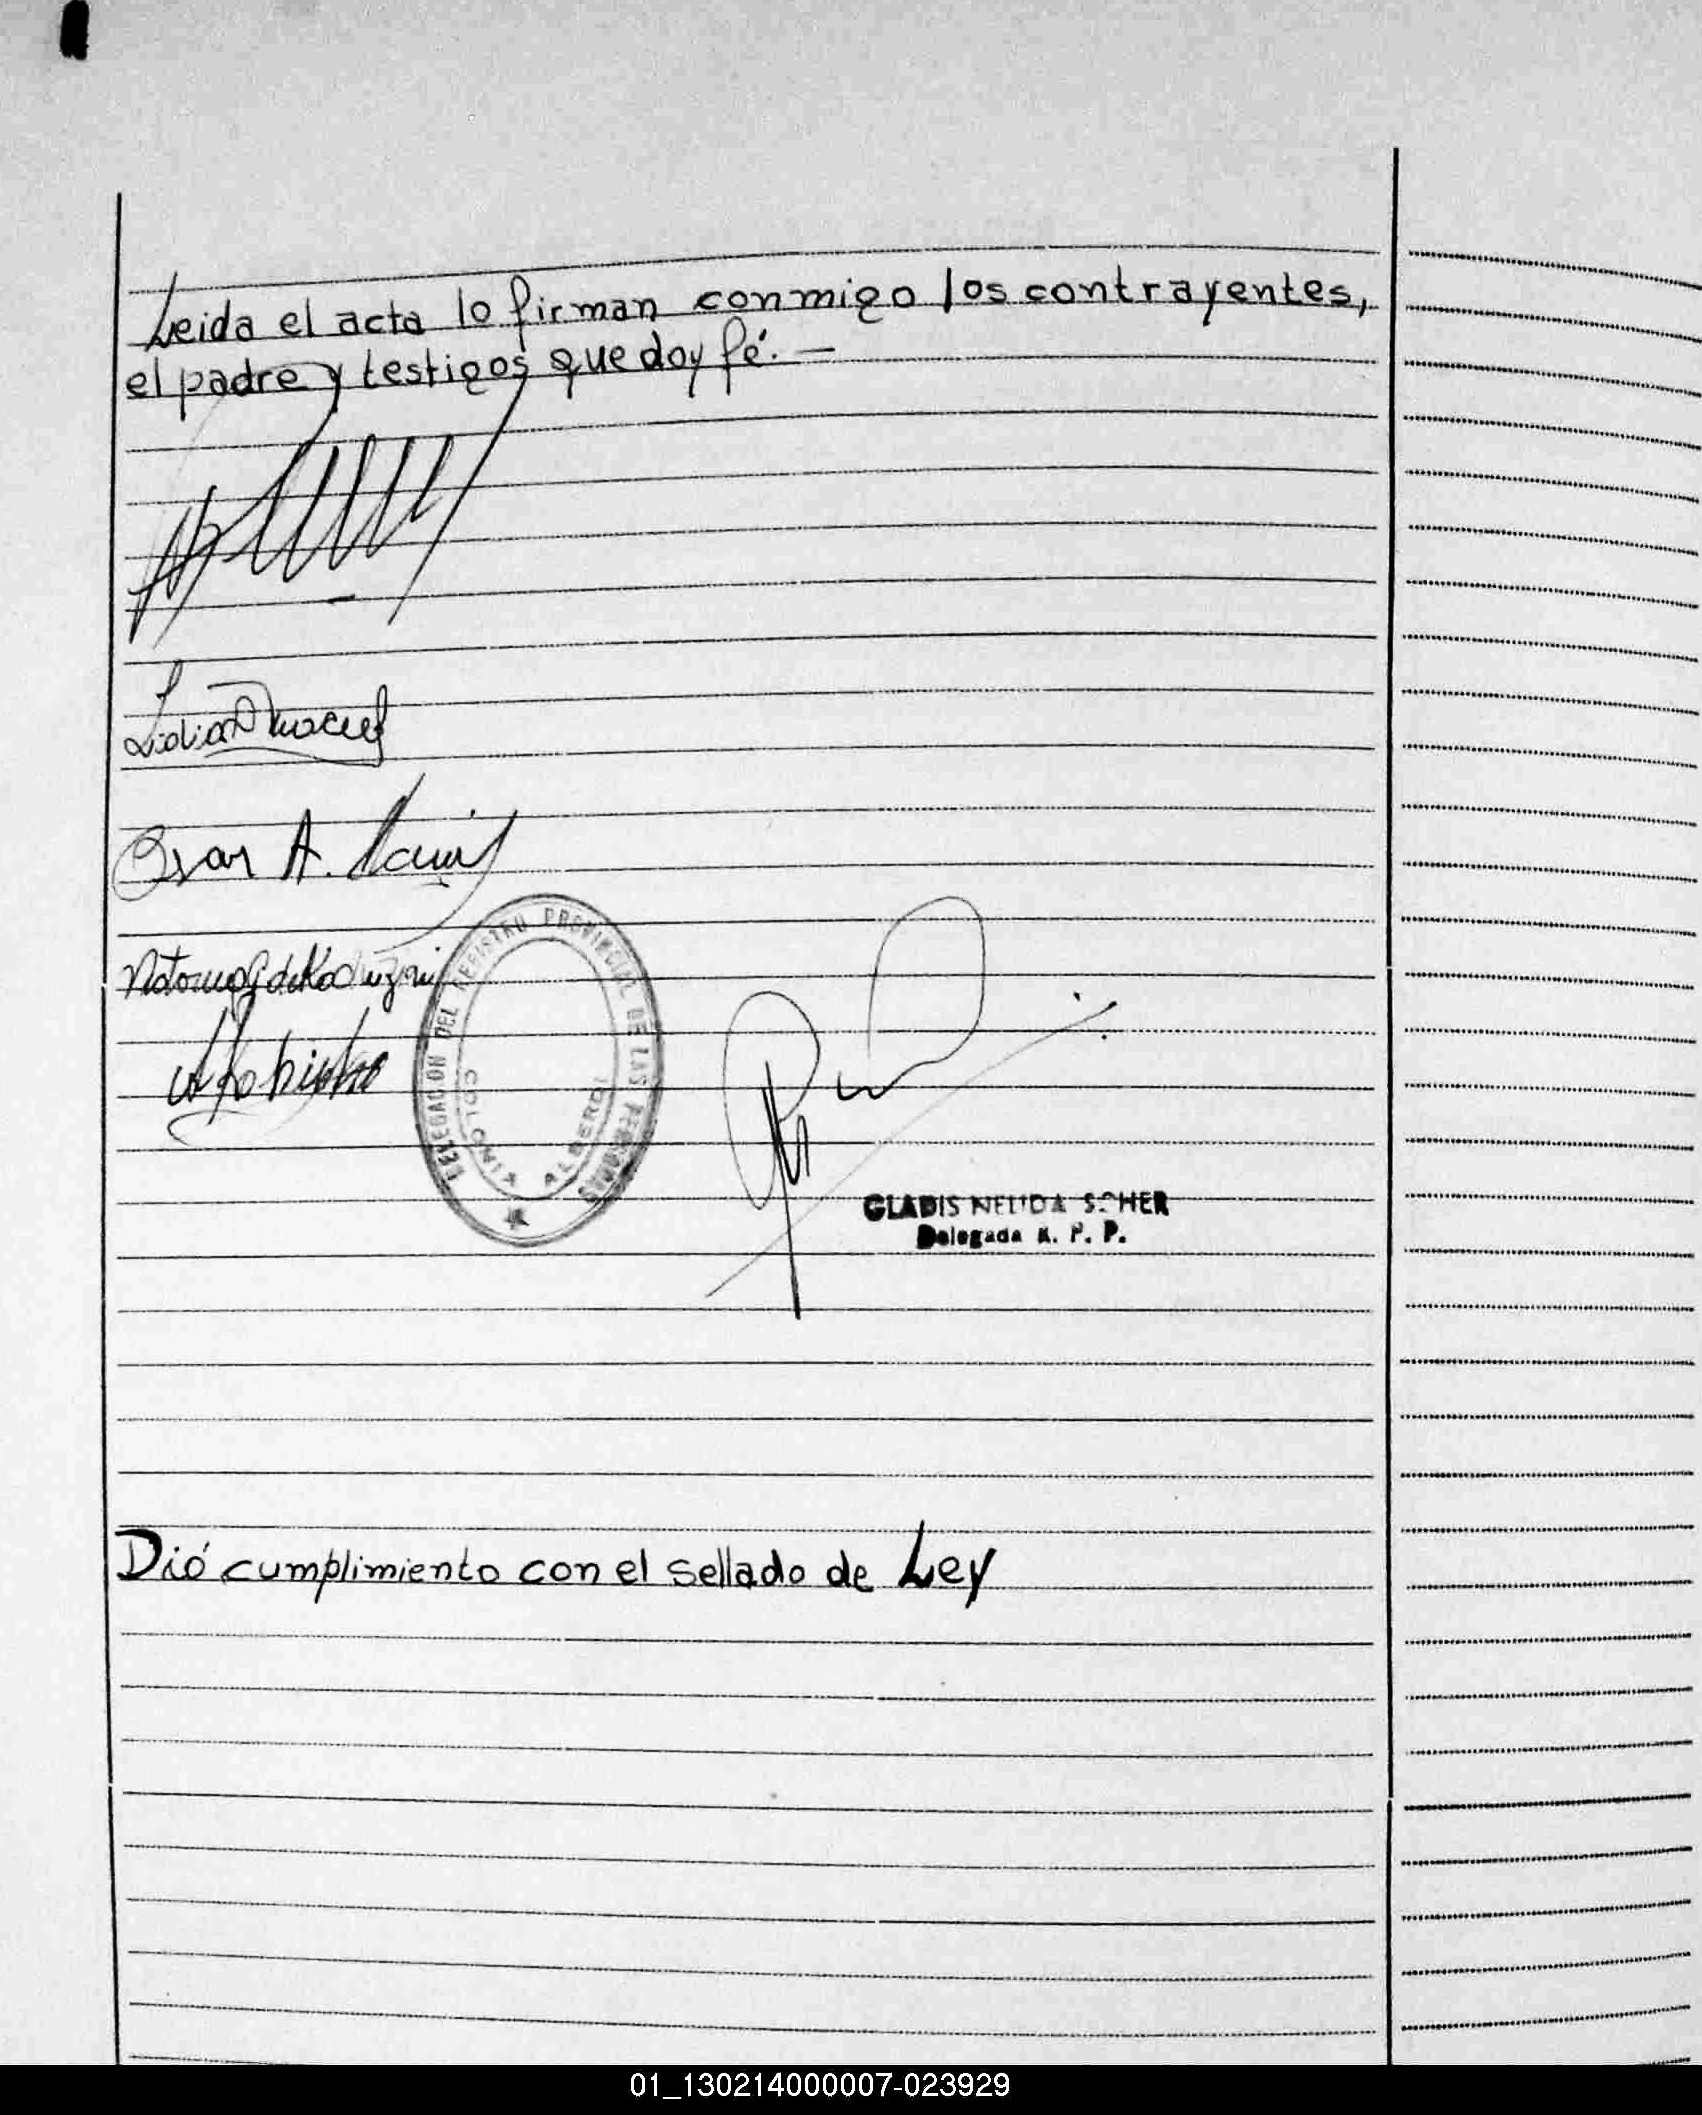 Leida el acta lo firman conmigo los contrayentes,
el padre y testigos que doy fé.—
Lidia
Oscar A.
DELEGACION DEL REGISTRO PROVINCIAL DE LAS PERSONAS
COLONIA ALBERDI
GLADIS NELIDA SCHER
Delegada R. P. P.
Dió cumplimiento con el sellado de Ley
01_130214000007-023929